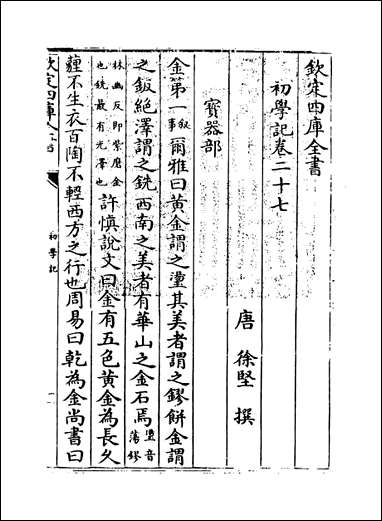 欽定四庫全書
初學記卷二十七
唐 徐堅 撰
寳器部
金第一 敘事 爾雅曰黄金謂之璗其美者謂之鏐餅金謂
之鈑絶澤謂之銑西南之美者有華山之金石焉 璗音蕩鏐
林幽反即紫磨金也銑最有光澤也 許慎說文曰金有五色黄金為長乆
薶不生衣百陶不輕西方之行也周易曰乾為金尚書曰
欽定四庫全書
初學記